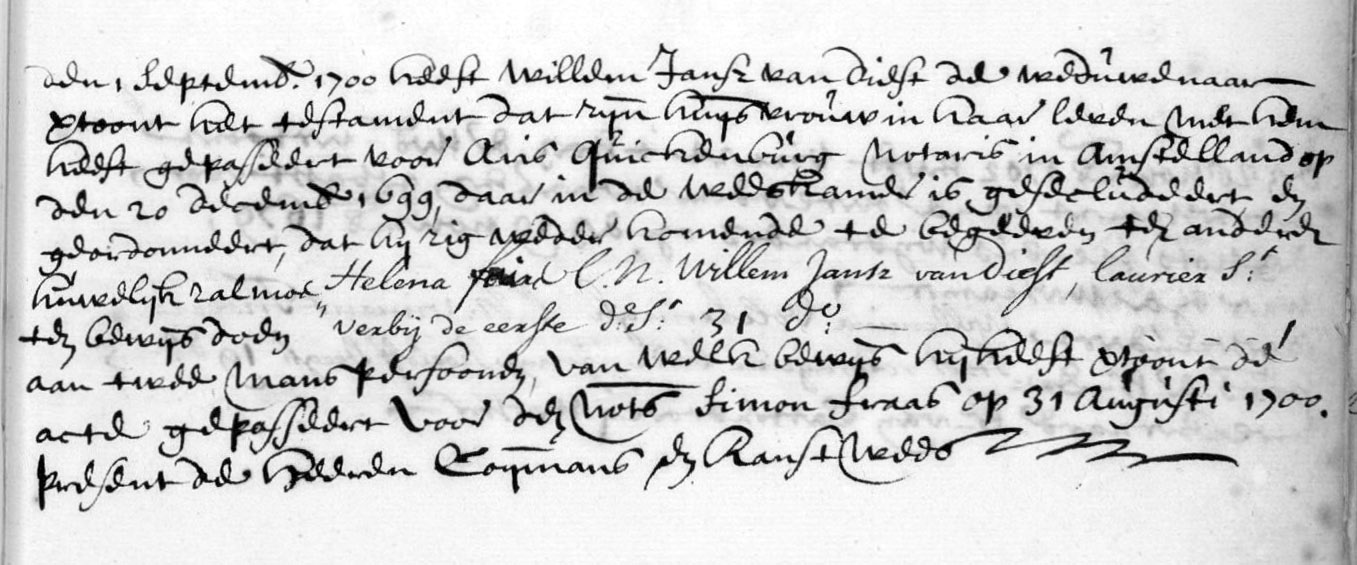 den 1 Septemb. 1700 heeft Willem Jansz van Diest de weduwenaar
vtoont het testament dat zijn huijsvrouw in haar leven met hem
heeft gepasseert voor Aris Quickenburg Notaris in Amstelland op
den 20 decemb 1699, daar in de weeskamer is geseclúdeert en
geordonneert, dat hij zig weder komende te begeeven ten anderen
huwelijk zal moe
Helena C. N. Willem Jansz van Diest, laurier St.
ten bewijs doen
verbij de eerste d. St. 31 do.
aan twee Mans persoonen, van welk bewijs hij heeft vtoont de
acte gepasseert voor den Nots Simon Fraas op 31 Augusti 1700.
present de Heeren Coijmans en Ranst Wees